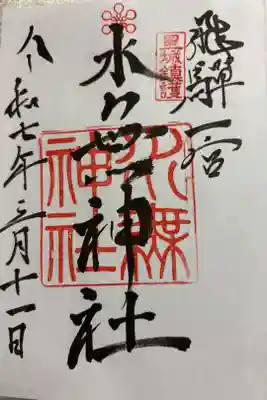 飛驒一宮
水無神社
水無
神社
令和七年三月十一日